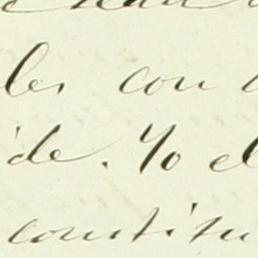 les con
ide. Yo el
constitu